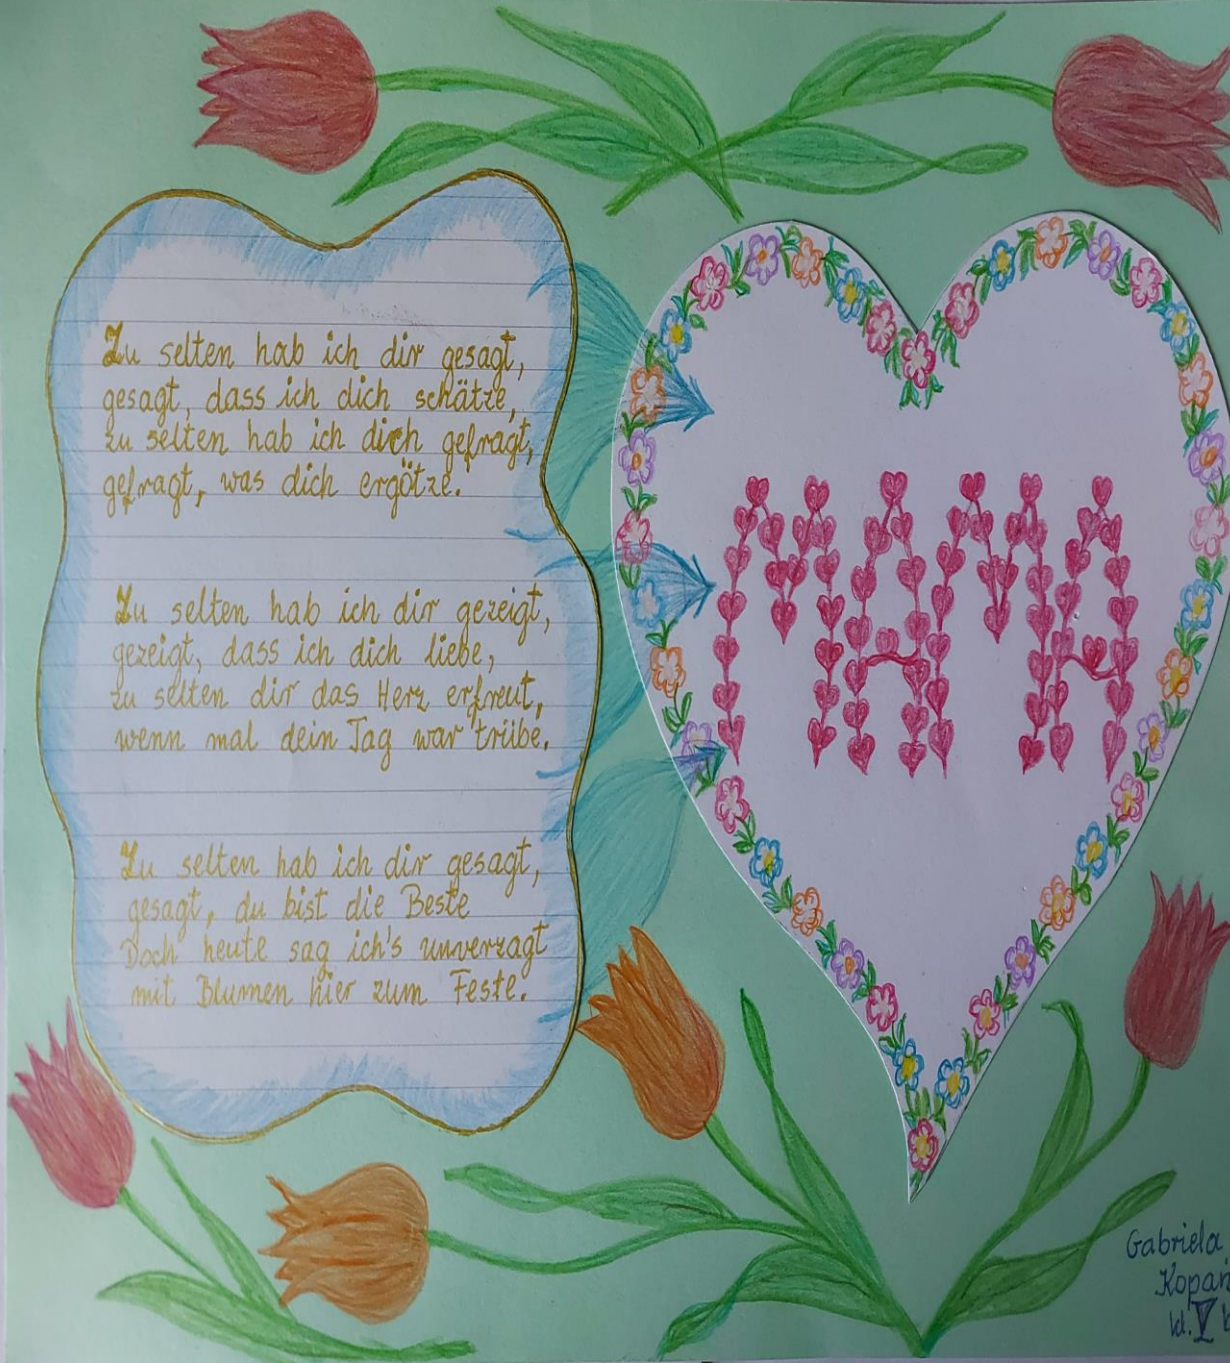 Zu selten hab ich dir gesagt,
gesagt, dass ich dich schätze,
zu selten hab ich dich gefragt,
gefragt, was dich ergötze.
Zu selten hab ich dir gezeigt,
gezeigt, dass ich dich liebe,
zu selten dir das Herz erfreut,
wenn mal dein Tag war trübe.
Zu selten hab ich dir gesagt,
gesagt, du bist die Beste
Doch heute sag ich's unverzagt
mit Blumen hier zum Feste.
MAMA
Gabriela
kl. V